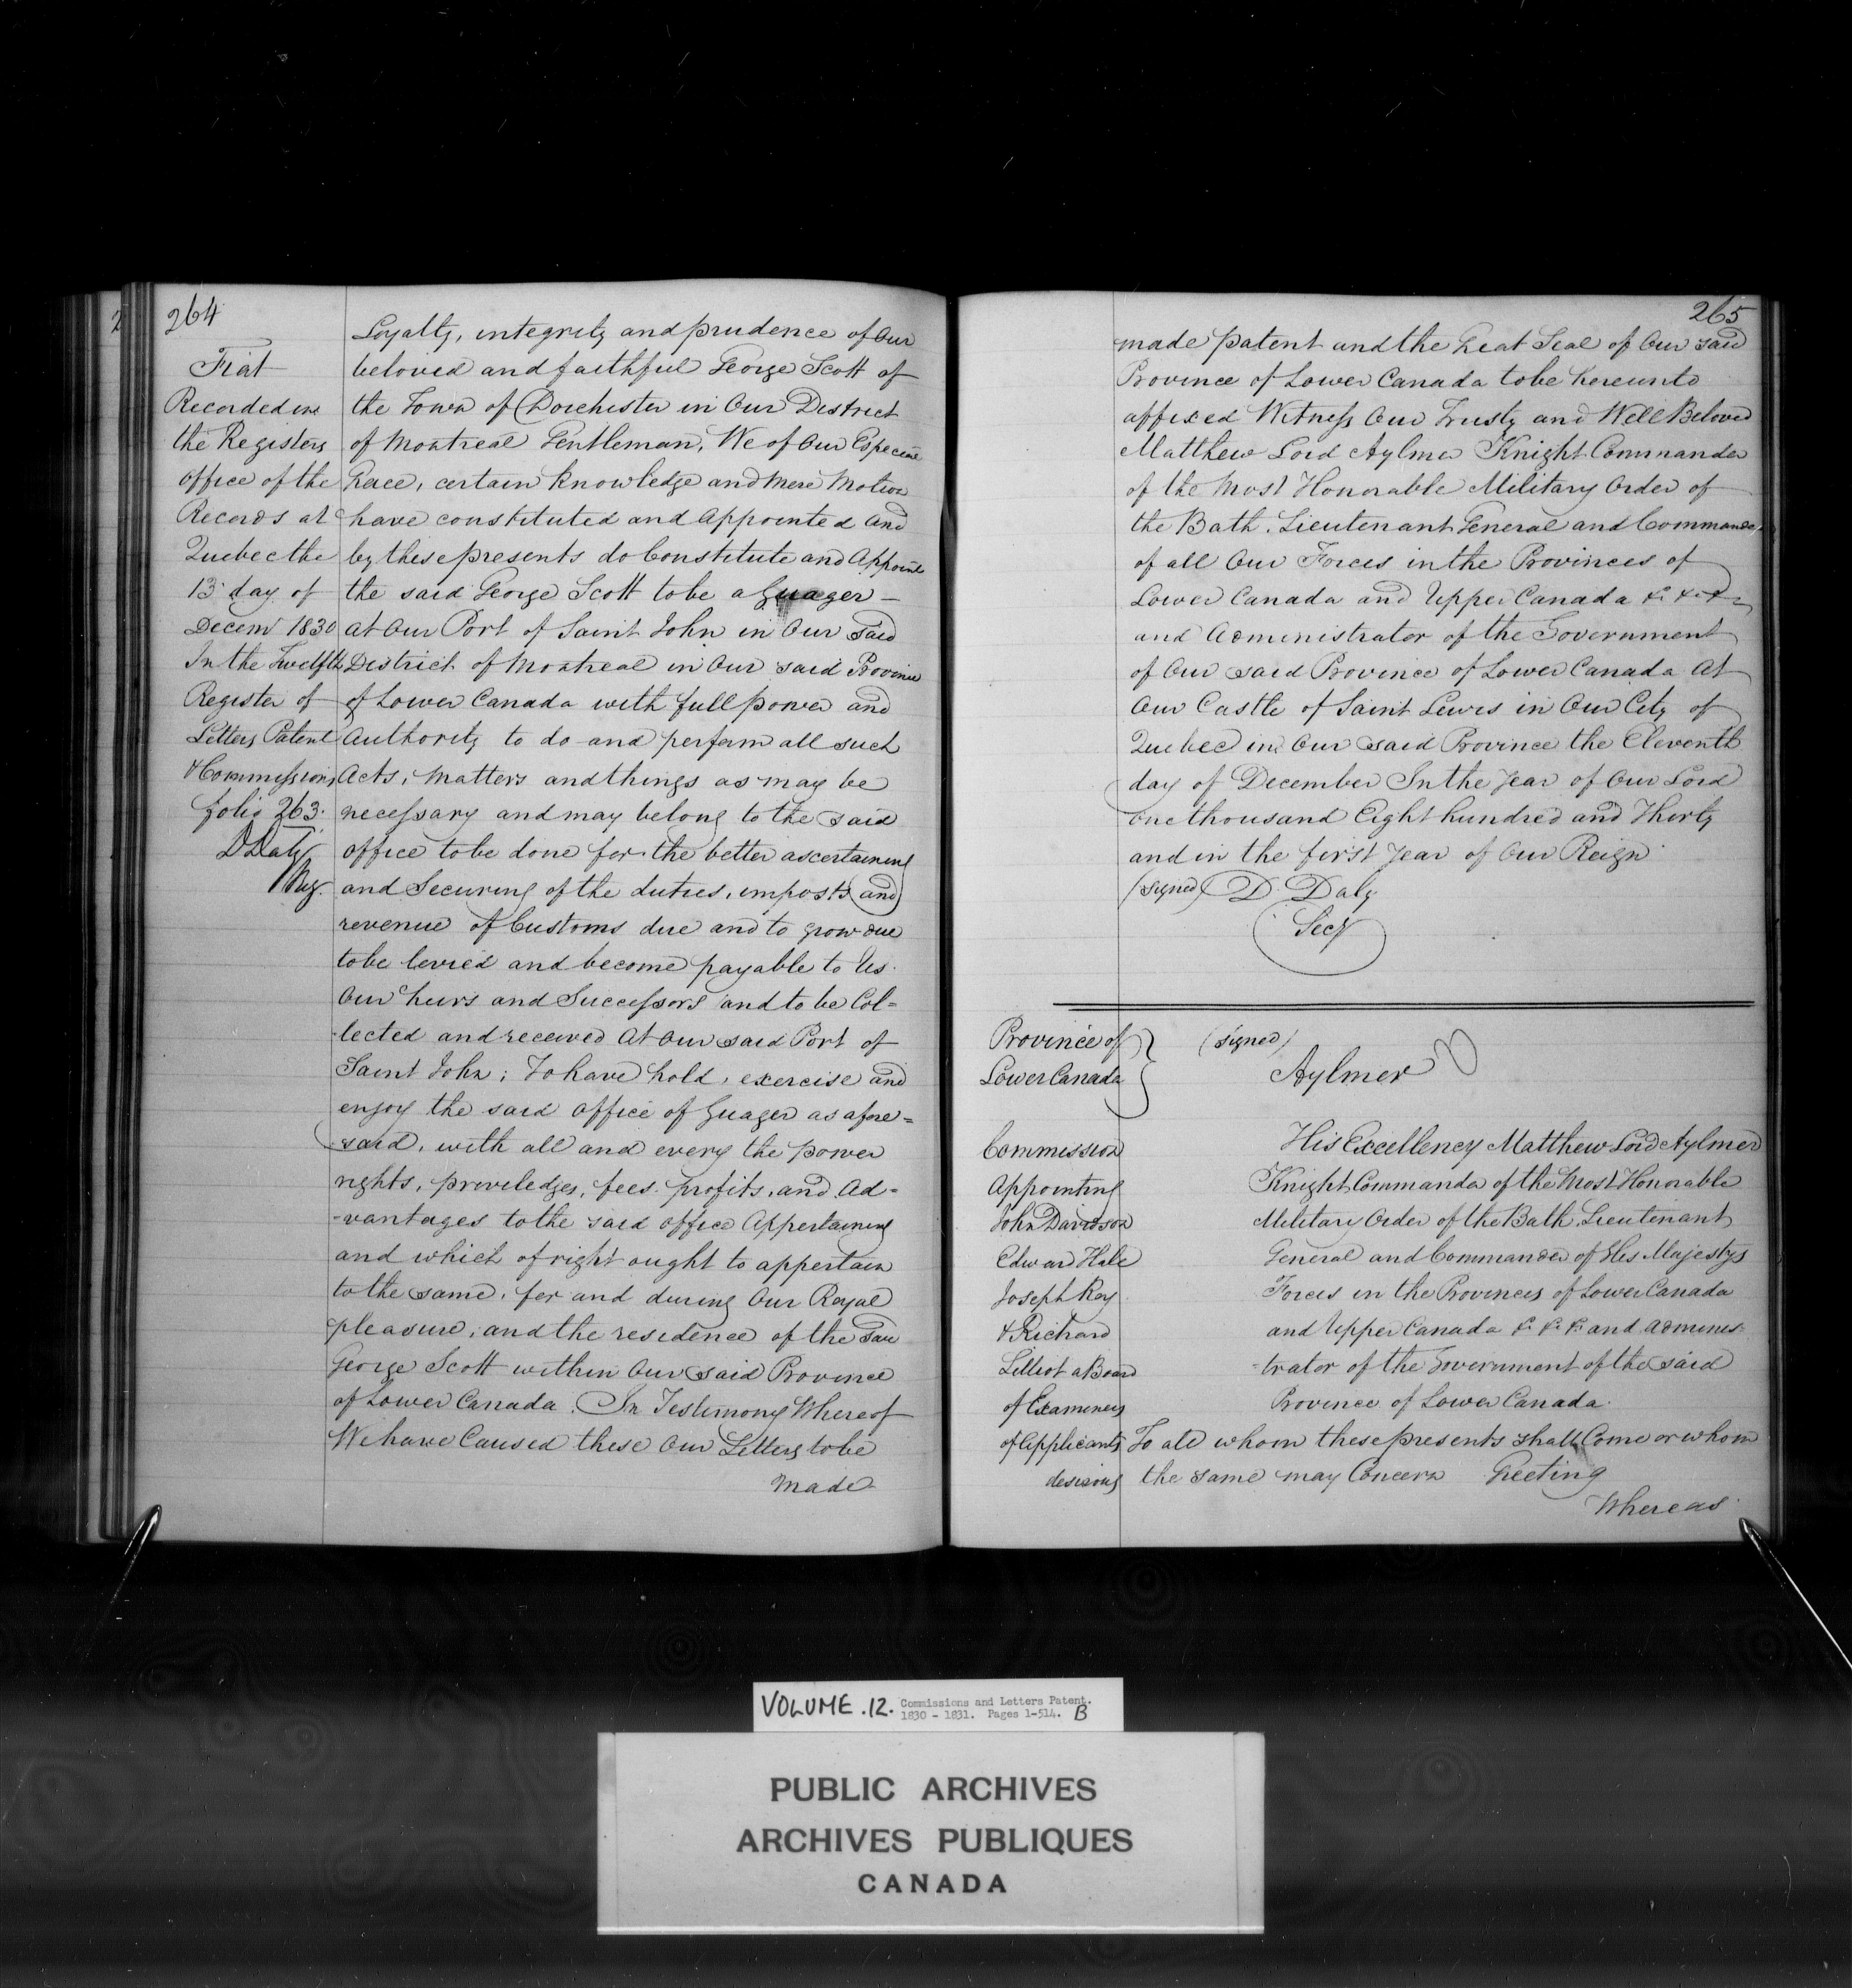 264
Fiat
Recorded in
the Registers
office of the
Records at
Quebec the
13 day of
Decemr 1830
In the Twelfth
Register of
Letters Patent
& Commissions
folio 263.
D Daly
Reg.
Loyalty, integrity and prudence of Our
beloved and faithful George Scott of
the Town of Dorchester in Our District
of Montreal Gentleman, We of Our Especial
Grace, certain Knowledge and Mere Motion
have constituted and Appointed And
by these presents do Constitute and Appoint
the said George Scott to be a Guager –
at Our Port of Saint John in Our Said
District of Montreal in Our said Province
of Lower Canada with full power and
Authority to do and perform all such
Acts, Matters and things as may be
necessary and may belong to the said
office to be done for the better ascertaining
and Securing of the duties, imposts and
revenue of Customs due and to grow due
to be levied and become payable to Us
Our heirs and Successors and to be Col=
-lected and received At Our said Port of
Saint John; To have hold, exercise and
enjoy the said office of Guager as afore=
-said, with all and every the power
rights, priviledges, fees profits, and Ad=
-vantages to the said office Appertaining
and which of right ought to appertain
to the same, for and during Our Royal
pleasure, and the residence of the Said
George Scott within Our said Province
of Lower Canada. In Testimony Whereof
We have Caused these Our Letters to be
Made
265
made patent and the Great Seal of Our said
Province of Lower Canada to be hereunto
affixed Witness Our Trusty and Well Beloved
Matthew Lord Aylmer Knight Commander
of the Most Honorable Military Order of
the Bath. Lieutenant General and Commander
of all Our Forces in the Provinces of
Lower Canada and Upper Canada &c &c &c
and Administrator of the Government
of Our said Province of Lower Canada At
Our Castle of Saint Lewis in Our City of
Quebec in Our said Province the Eleventh
day of December In the Year of Our Lord
One thousand Eight hundred and Thirty
and in the first Year of Our Reign
(signed) D. Daly
Secy
Province of
Lower Canada
(signed)
Aylmer
Commission
Appointing
John Davidson
Edward Hale
Joseph Roy
& Richard
Lilliot a Board
of Examiners
of Applicants
desirous
His Excellency Matthew Lord Aylmer
Knight Commander of the Most Honorable
Military Order of the Bath Lieutenant
General and Commander of His Majestys
Forces in the Provinces of Lower Canada
and Upper Canada &c &c &c and Adminis-
-trator of the Government of the said
Province of Lower Canada.
To all whom these presents shall Come or whom
the same may Concern Greeting
Whereas
VOLUME .12. Commissions and Letters Patent.
1830 - 1831. Pages 1-514. B
PUBLIC ARCHIVES
ARCHIVES PUBLIQUES
CANADA